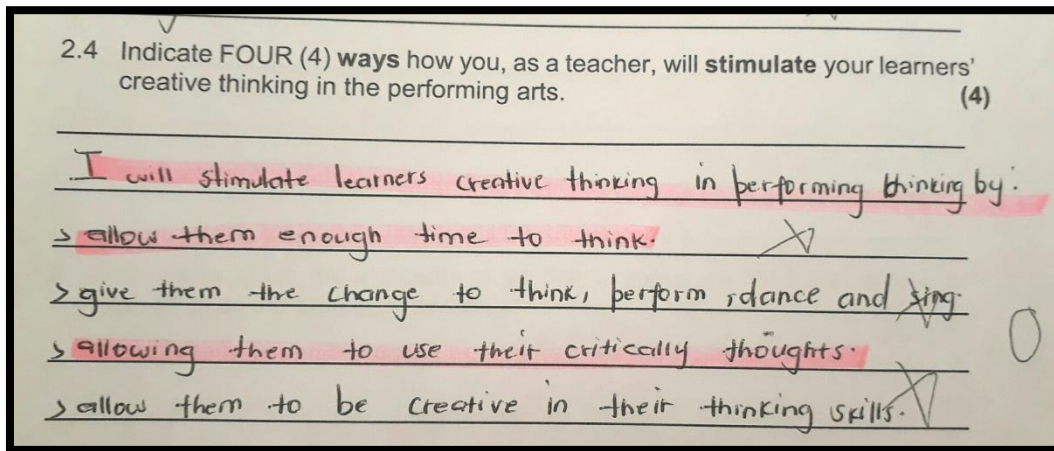 2.4 Indicate FOUR (4) ways how you, as a teacher, will stimulate your learners'
creative thinking in the performing arts.
(4)
I will stimulate learners creative thinking in performing thinking by:
> allow them enough time to think.
> give them the change to think, perform, dance and sing.
> allowing them to use their critically thoughts.
0
> allow them to be creative in their thinking skills.